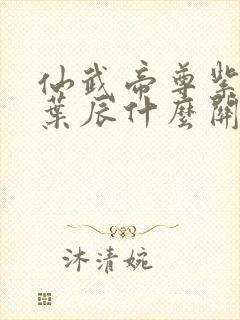 仙武帝尊紫
葉辰什麼關
沐清婉